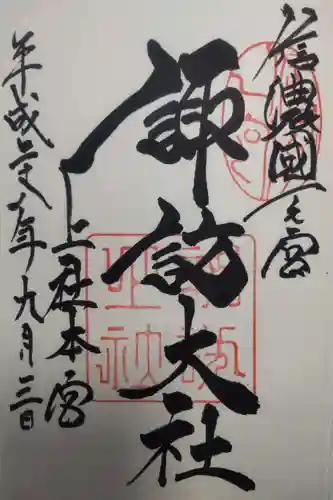 信濃國一之宮
諏訪大社
上社本宮
平成二十九年九月三日